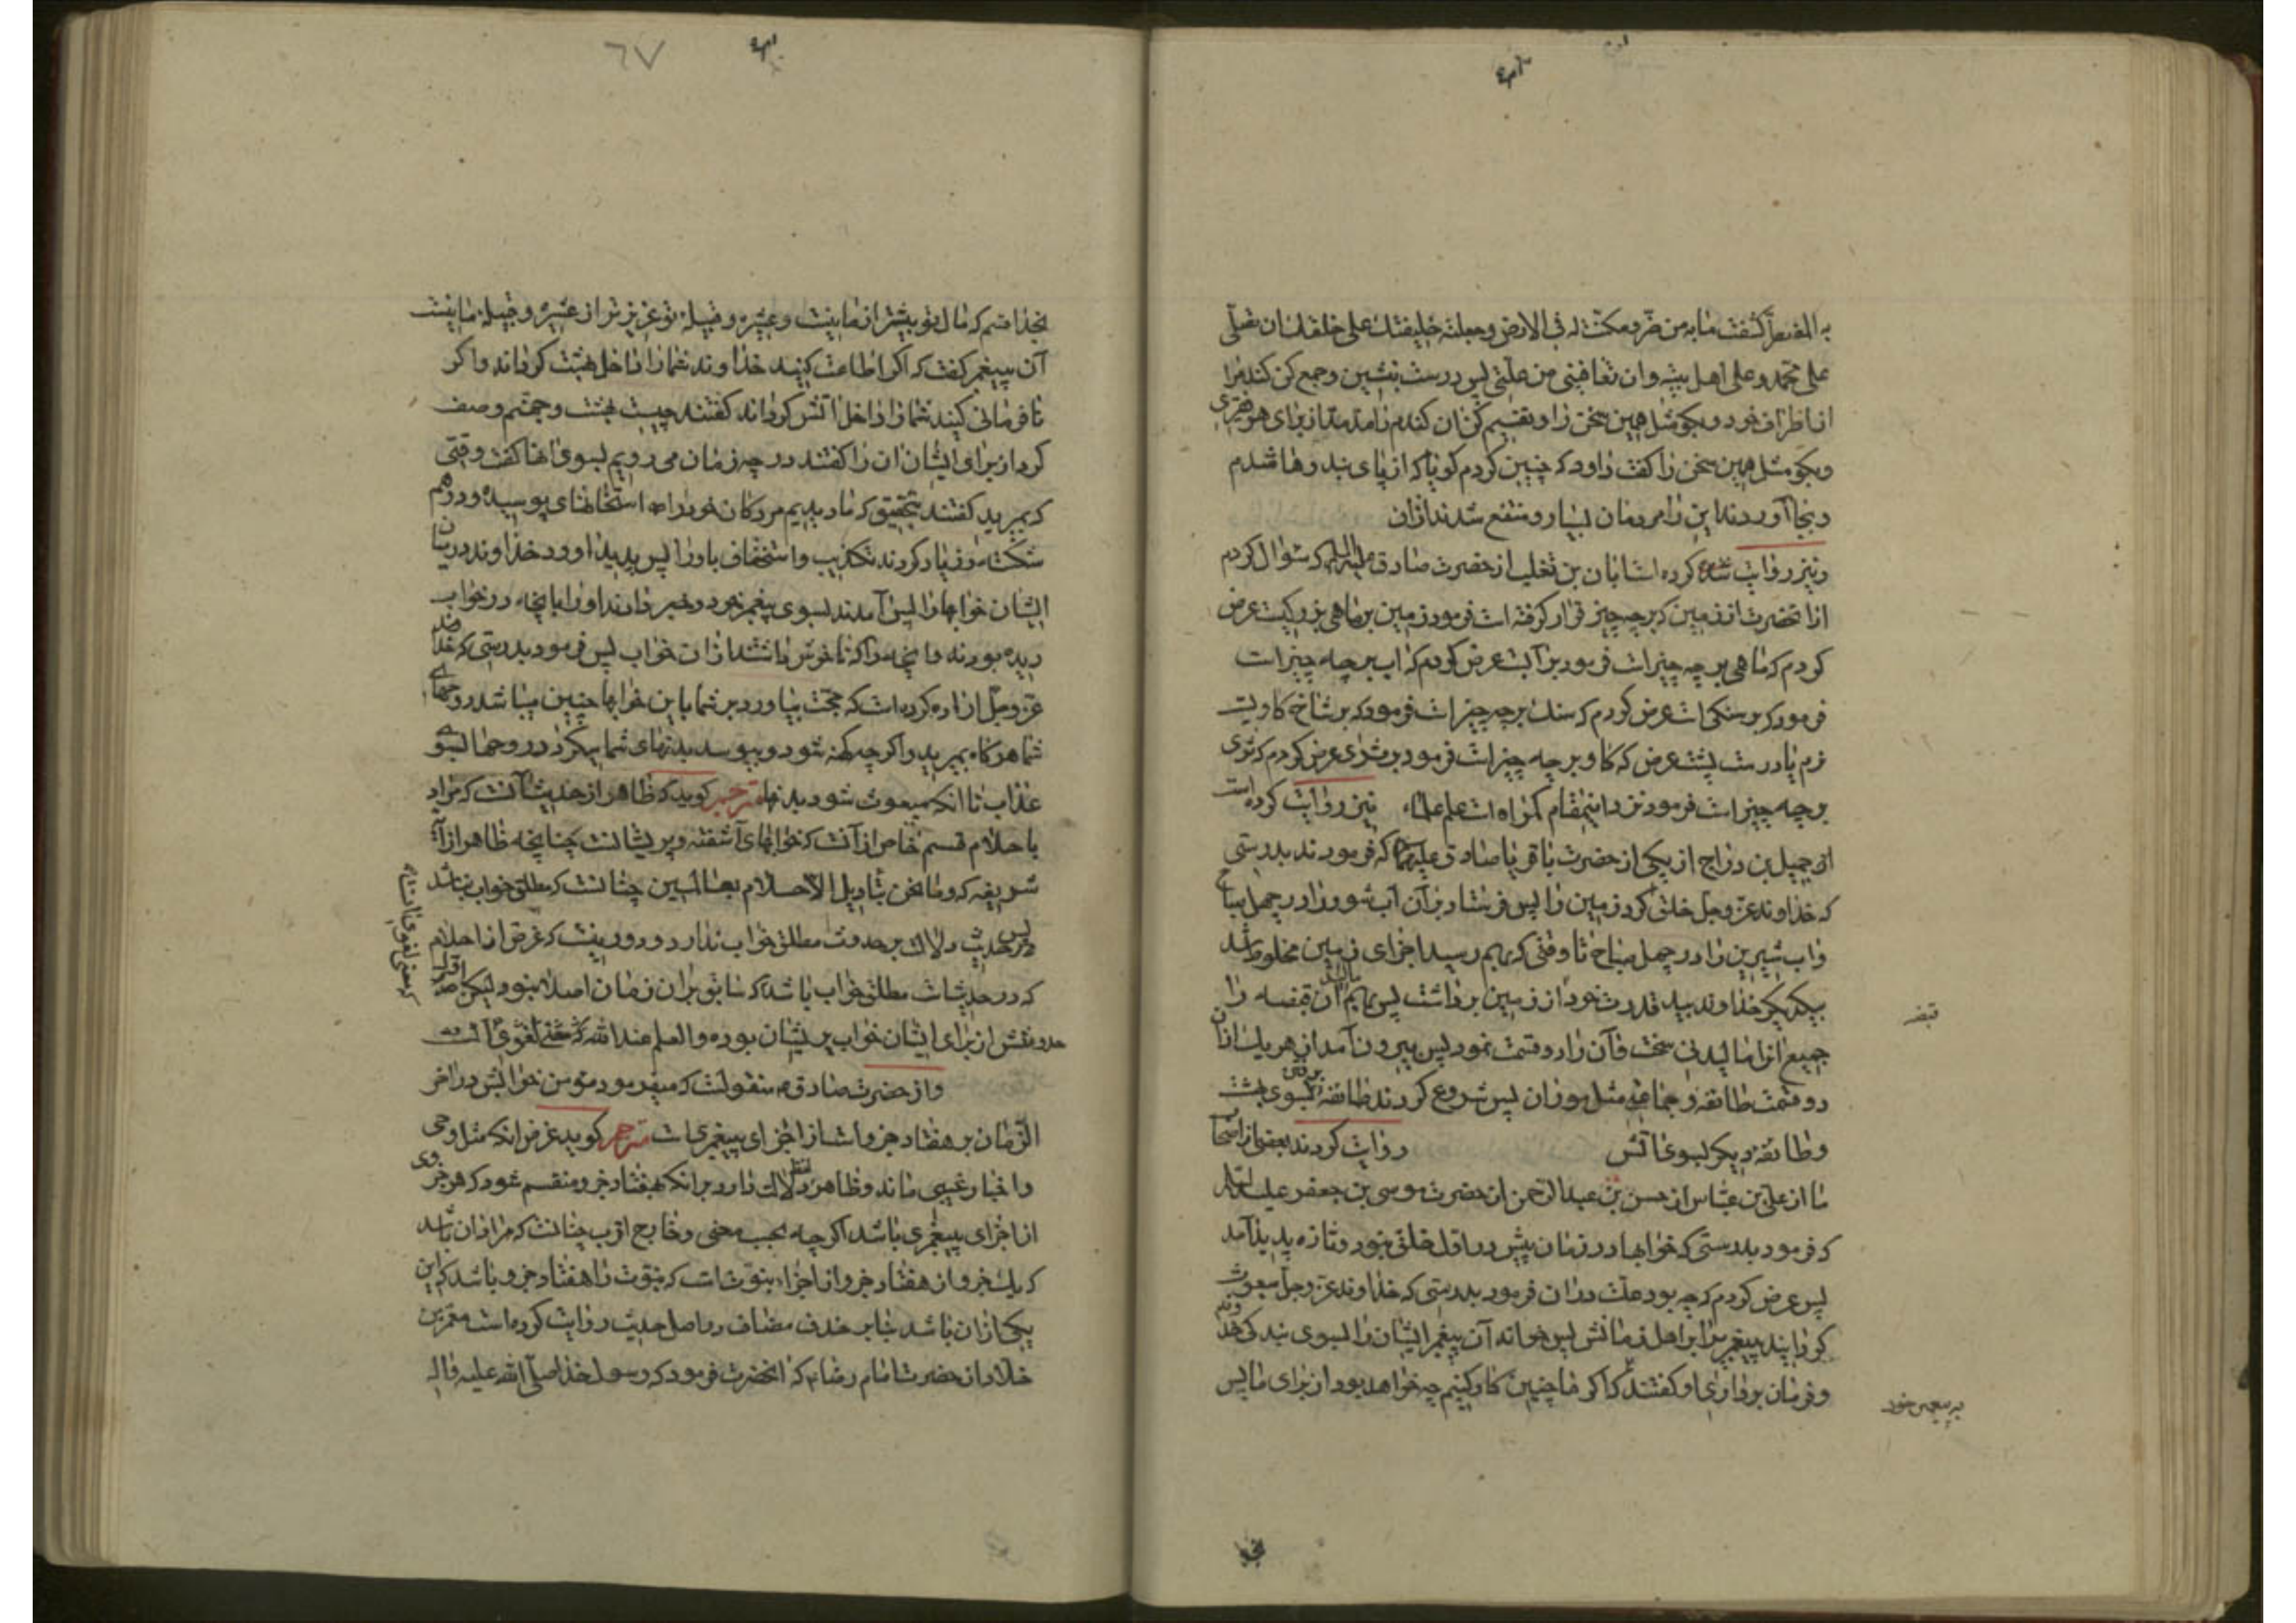 به المضطر کشفت مابه من ضر ومکنت له فی الارض وجعلته خلیفتك علی خلقك ان تصلی
علی محمد وعلی اهل بیته وان تعافینی من علتی پس درست بنشین وجمع کن کندم را
از اطراف خود وبکو مثل همین سخن را وتقسیم کن ان کندم را مد مد از برای هر فقیری
وبکو مثل همین سخن را کفت داود که چنین کردم کویا که از پای بند رها شدم
وبجا آوردند این را مردمان بسیار ومنتفع شدند ازان
ونیز روایت کرده است ابان بن تغلب از حضرت صادق علیه السلم که سئوال کردم
ازانحضرت از زمین که برچه چیز قرار کرفته است فرمود زمین بر ماهی بزرکیست عرض
کردم که ماهی بر چه چیز است فرمود بر آب عرض کردم که اب بر چه چیز است
فرمود که بر سنکی است عرض کردم که سنك بر چه چیز است فرمود که بر شاخ کاویست
نرم یا درست پشت عرض که کاو بر چه چیز است فرمود بر ثری عرض کردم که ثری
برچه چیز است فرمود نزد اینمقام کمراه است علم علماء نیز روایت کرده است
از جمیل بن دراج از یکی از حضرت باقر یا صادق علیهما که فرمودند بدرستی
که خداوند عز وجل خلق کرد زمین را پس فرستاد بر آن آب شور را در چهل صباح
واب شیرین را در چهل صباح تا وقتی که بهم رسید اجزای زمین مخلوط شد
بیکدیکر خداوند بید قدرت خود از زمین برداشت پس بهم مالید آن قبضه را
جمیع انرا مالیدنی سخت وآن را دو قسمت نمود پس بیرون آمد از هر یك ازان
دو قسمت طائفه وجماعه مثل موران پس شروع کردند طائفه برفتن بسوی بهشت
وطائفه دیکر بسوی آتش روایت کردند بعضی از اصحاب
ما از علی بن عباس از حسن بن عبدالرحمن از حضرت موسی بن جعفر علیه السلم
که فرمود بدرستی که خوابها در زمان پیش در اول خلق نبود وتازه پدید آمد
پس عرض کردم که چه بود علت دران فرمود بدرستی که خداوند عز وجل مبعوث
کردانید پیغمبریرا بر اهل زمانش پس خواند آن پیغمبر ایشان را بسوی بندکی خداوند
وفرمان برداری او کفتند که اکر ما چنین کار کنیم چه خواهد بود از برای ما پس
قبضه
٦٧
بخدا قسم که مال تو بیشتر از ما نیست وعشیره وقبیله تو عزیزتر از عشیره وقبیله ما نیست
آن پیغمبر کفت که اکر اطاعت کنید خداوند شما را داخل بهشت کرداند واکر
نافرمانی کنید شما را داخل اتش کرداند کفتند چیست بهشت وجهنم وصف
کرد از برای ایشان ان را کفتند در چه زمان می رویم بسوی انها کفت وقتی
که بمیرید کفتند بتحقیق که ما دیدیم مردکان خود را که استخانهای پوسیده ودرهم
شکسته وزیاد کردند تکذیب واستخفاف باو را پس پدید اورد خداوند درمیان
ایشان خوابها را پس آمدند بسوی پیغمبر خود وخبر دادند او را بانچه در خواب
دیده بودند وانچه را که ناخوش داشتند ازان خواب پس فرمود بدرستی که خداوند
عز وجل اراده کرده است که حجت بیاورد بر شما باین خوابها چنین میباشد روحهای
شما هرکاه بمیرید واکرچه کهنه شود وبپوسد بدنهای شما میکردد روحها بسوی
عذاب تا انکه مبعوث شود بدنها مترجم کوید که ظاهر از حدیث آنست که مراد
باحلام قسم خاص از آنست که خوابهای آشفته وپریشانست چنانچه ظاهر از آیه
شریفه که وما نحن بتاویل الاحلام بعالمین چنانست که مطلق خواب نباشد
پس حدیث دلالت بر حدوث مطلق خواب ندارد ودور نیست که غرض از احلام
که در حدیث است مطلق خواب باشد که سابق بران زمان اصلا نبود لیکن اول
حدوثش از برای ایشان خواب پریشان بوده والعلم عند الله که معنی لغوی آنست
واز حضرت صادق منقولست که میفرمود مؤمن خوابش در اخر
الزمان بر هفتاد جزو است از اجزای پیغمبری است مترجم کوید غرض انکه مثل وحی
واخبار غیبی ماند وظاهر لفظ دلالت دارد برانکه بهفتاد جزو منقسم شود که هر جزوی
از اجزای پیغمبری باشد اکرچه بحسب معنی وخارج اقرب چنانست که مراد ان باشد
که یك جزو از هفتاد جزو از اجزاء نبوت است که نبوت را هفتاد جزو باشد که این
یکی ازان باشد بنابر حذف مضاف در اصل حدیث روایت کرده است معمر بن
خلاد از حضرت امام رضا که انحضرت فرمود که رسول خدا صلی الله علیه واله